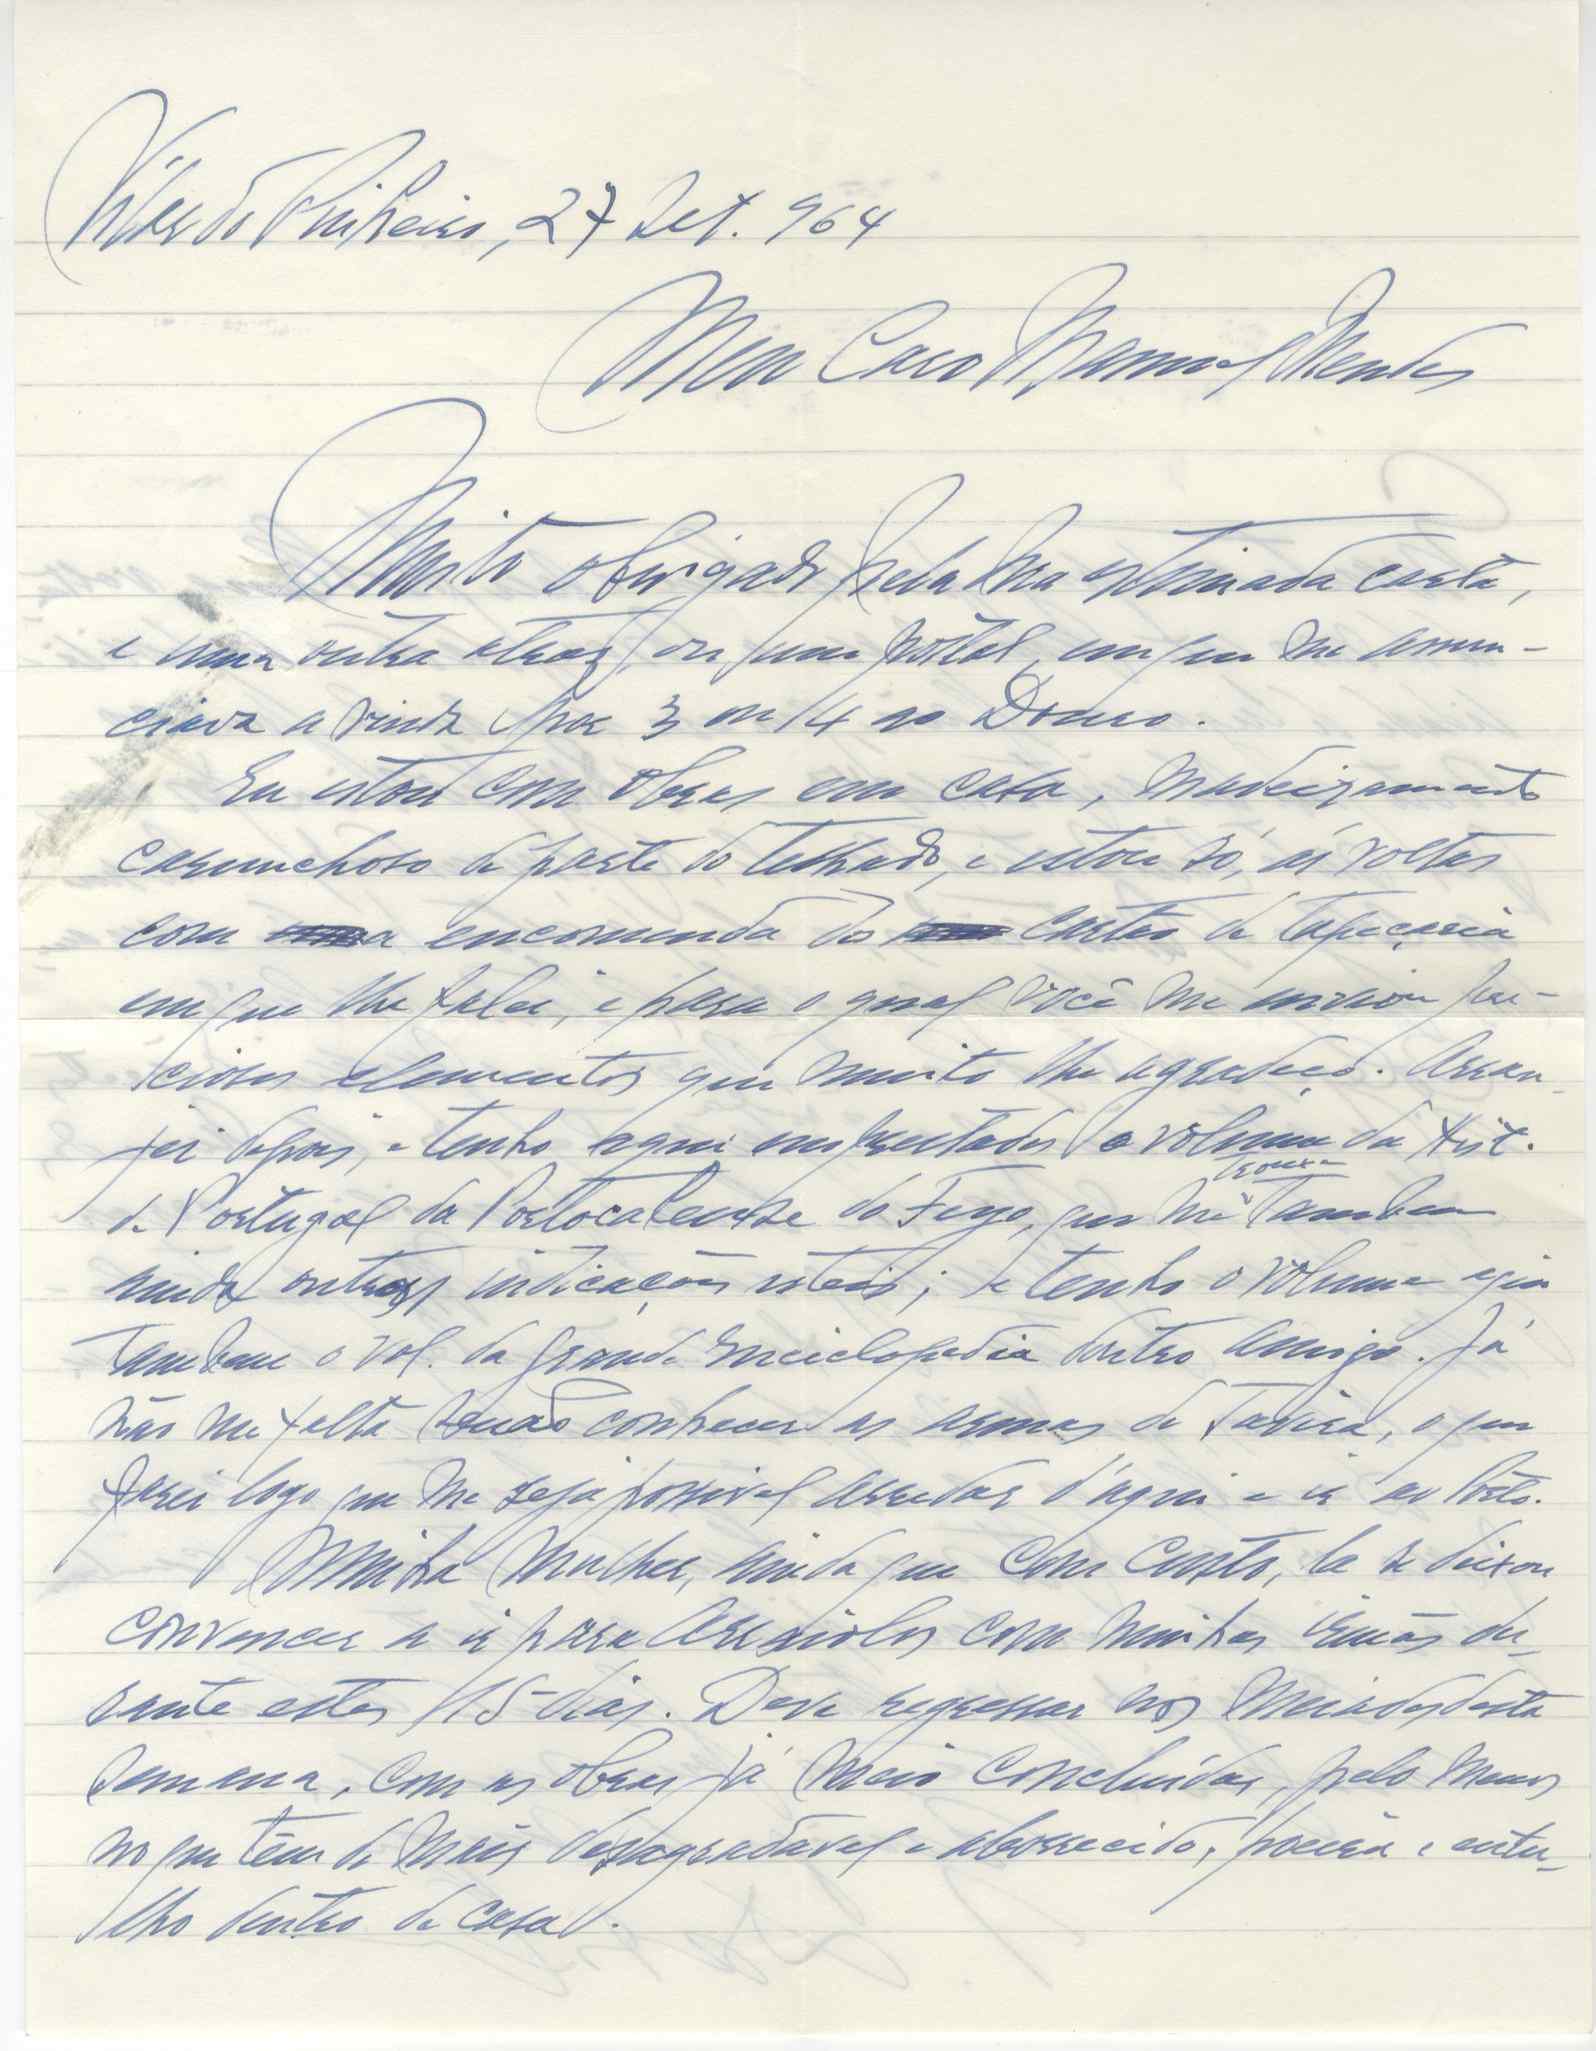 Vilar do Pinheiro, 27 Set. 964
Meu Caro Manuel Mendes
Muito obrigado pela sua estimada carta,
e uma outra atraz, ou um postal, em que me anun-
ciava a vinda por 3 ou 4 ao Douro.
Eu estou com obras em casa, madeiramento
carunchoso de parte do telhado, e estou só, ás voltas
com a encomenda do cartão de tapeçaria
em que lhe falei, e para o qual você me enviou pre-
ciosos elementos que muito lhe agradeço. Arran-
jei depois, e tenho aqui emprestados o volume da Hist.
de Portugal da Portucalense do , que me trouxe tambem
ainda outras indicações uteis; e tenho o volume
tambem o vol. da grande Enciclopedia doutro amigo. Já
não me falta senão conhecer as armas de Tavira, o que
farei logo que me seja possivel arredar d'aqui e ir ao Porto.
Minha Mulher, ainda que com custo, la se deixou
convencer a ir para Arraiolos com minhas irmãs du-
rante estes 15 dias. Deve regressar nos meiados desta
semana, com as obras já meio concluídas, pelo menos
no que têm de mais desagradavel e aborrecido, poeira e entu-
lho dentro de casa.